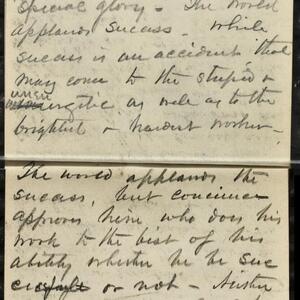 special glory - The world
applauds success - While
success is an accident that
may come to the stupid &
unenergetic as well as to the
brightest & hardest worker -
The world applauds the
success, but concience
approves him who does his
work to the best of his
ability whether he be suc
cessfull or not - Neither